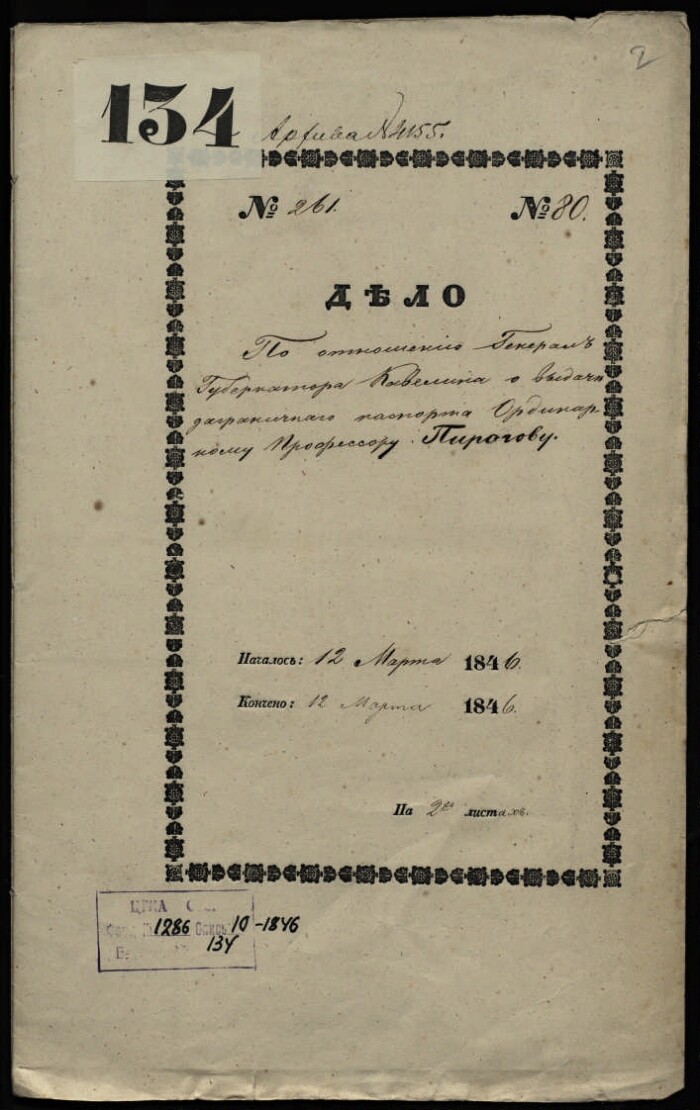 2
134
Архива № 2155.
№ 261. № 80.
ДѢЛО
По отношенію Генералъ
Губернатора Кавелина о выдачѣ
заграничнаго паспорта Ординар-
ному Профессору Пирогову.
Началось: 12 Марта 1846.
Кончено: 12 Марта 1846.
На 2хъ листахъ.
ЦГИА
1286 10-1846
134